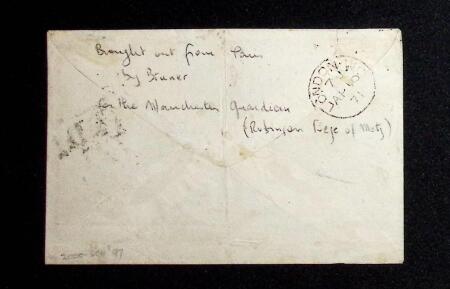 Brought out from Paris
by Bruner
for the Manchester Guardian
(Robinson Siege of Metz)
LONDON
7
JA
71
2000